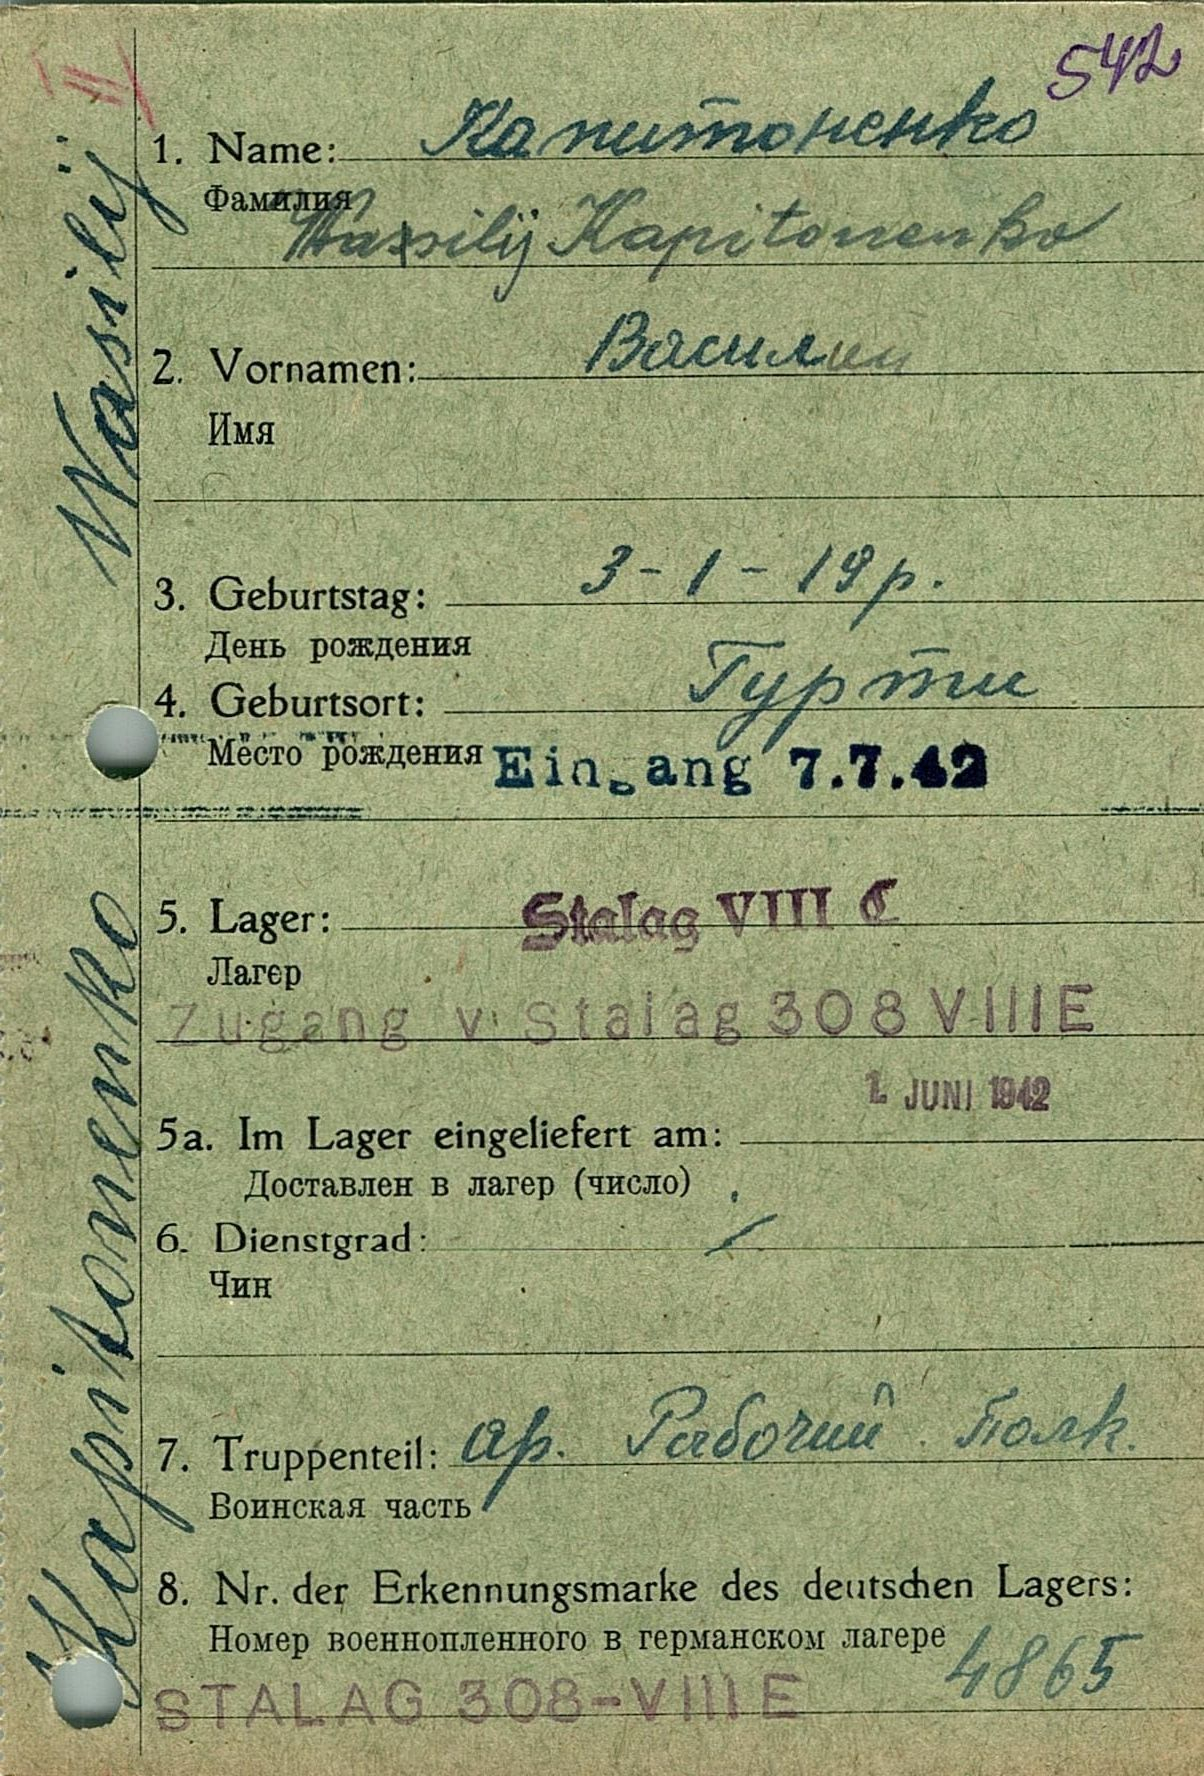 542
1. Name: Капитоненко
Фамилия
Wassilij Kapitonenko
2. Vornamen: Василий
Имя
3. Geburtstag: 3-1-19р.
День рождения
4. Geburtsort: Гурти
Место рождения Eingang 7.7.42
5. Lager: Stalag VIII C
Лагер
Zugang v. Stalag 308 VIII E
1. JUNI 1942
5a. Im Lager eingeliefert am:
Доставлен в лагер (число)
6. Dienstgrad:
Чин
7. Truppenteil: ар. Рабочий Полк.
Воинская часть
8. Nr. der Erkennungsmarke des deutschen Lagers:
Номер военнопленного в германском лагере 4865
STALAG 308-VIII E
Kapitonenko Wasilij